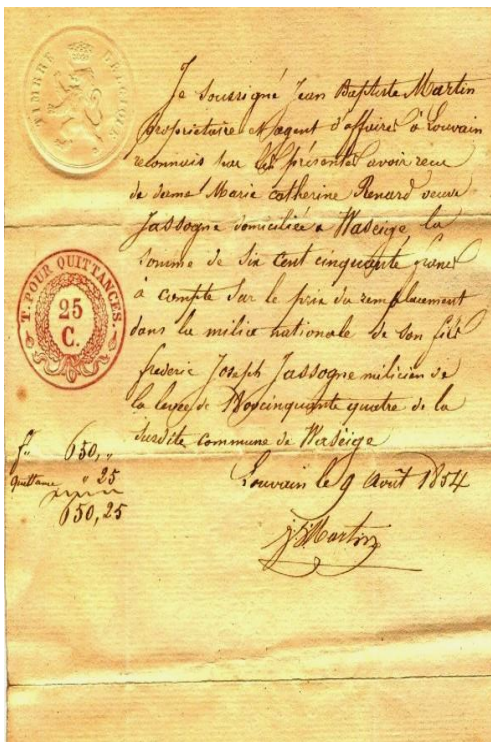 TIMBRE BELGIQUE
Je soussigné Jean Baptiste Martin
propriétaire et agent d'affaires à Louvain
reconnais sur les présentes avoir recu
de dame Marie Catherine Renard veuve
Jassogne domiciliée a Waseige la
somme de six cent cinquante francs
à compte sur le prix du remplacement
dans la milice nationale de son fils
frederic Joseph Jassogne milicien de
la levée de cinquante quatre de la
susdite commune de Waseige
Louvain le 9 Août 1854
J B Martin
T. POUR QUITTANCES.
25
C.
fs 650,"
quittance " 25
650,25